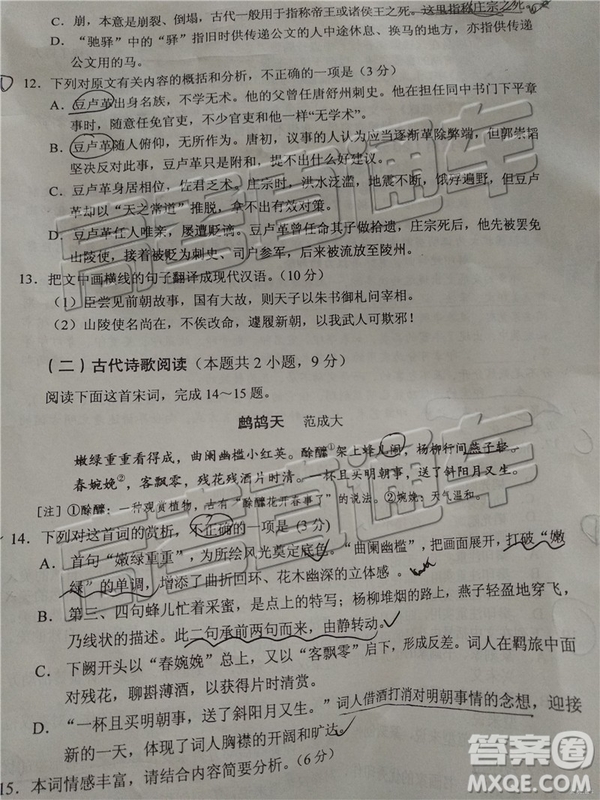 C. 崩，本意是崩裂、倒塌，古代一般用于指称帝王或诸侯王之死。这里指称庄宗之死。
D. “驰驿”中的“驿”指旧时供传递公文的人中途休息、换马的地方，亦指供传递
公文用的马。
12. 下列对原文有关内容的概括和分析，不正确的一项是（3 分）
A. 豆卢革出身名族，不学无术。他的父曾任唐舒州刺史。他在担任同中书门下平章
事时，随意任免官吏，不少官吏和他一样“无学术”。
B. 豆卢革随人俯仰，无所作为。唐初，议事的人认为应当逐渐革除弊端，但郭崇韬
坚决反对此事，豆卢革只是附和，提不出什么好建议。
C. 豆卢革身居相位，佐君乏术。庄宗时，洪水泛滥，地震不断，饿浮遍野，但豆卢
革却以“天之常道”推脱，拿不出有效对策。
D. 豆卢革任人唯亲，屡遭贬谪。他与韦说关系特殊，相互倚仗，庄宗死后，他先被罢免
山陵使，接着被贬为刺史、司户参军，后来被流放于陵州。
13. 把文中画横线的句子翻译成现代汉语。（10 分）
（1）臣尝见前朝故事，国有大故，则天子以朱书御札问宰相。
（2）山陵使名尚在，不俟改命，遽履新朝，以我武人可欺邪！
（二）古代诗歌阅读（本题共 2 小题，9 分）
阅读下面这首宋词，完成 14～15 题。
鹧鸪天 范成大
嫩绿重重看得成，曲阑幽槛小红英。酴醾①架上蜂儿闹，杨柳行间燕子轻。
春婉娩②，客飘零，残花残酒片时清。一杯且买明朝事，送了斜阳月又生。
[注] ①酴醾：一种观赏植物，古有“酴醾花开春事了”的说法。②婉娩：天气温和。
14. 下列对这首词的赏析，不正确的一项是（3 分）
A. 首句“嫩绿重重”，为所绘风光奠定底色。“曲阑幽槛”，把画面展开，打破“嫩
绿”的单调，增添了曲折回环、花木幽深的立体感。
B. 第三、四句蜂儿忙着采蜜，是点上的特写；杨柳堆烟的路上，燕子轻盈地穿飞，
乃线状的描述。此二句承前两句而来，由静转动。
C. 下阕开头以“春婉娩”总上，又以“客飘零”启下，形成反差。词人在羁旅中面
对残花，聊斟薄酒，以获片时清赏。
D. “一杯且买明朝事，送了斜阳月又生。”词人借酒打消对明朝事情的念想，迎接
新的一天，体现了词人胸襟的开阔和旷达。
15. 本词情感丰富，请结合内容简要分析。（6 分）
高考直通车
答案圈
MXQE.COM